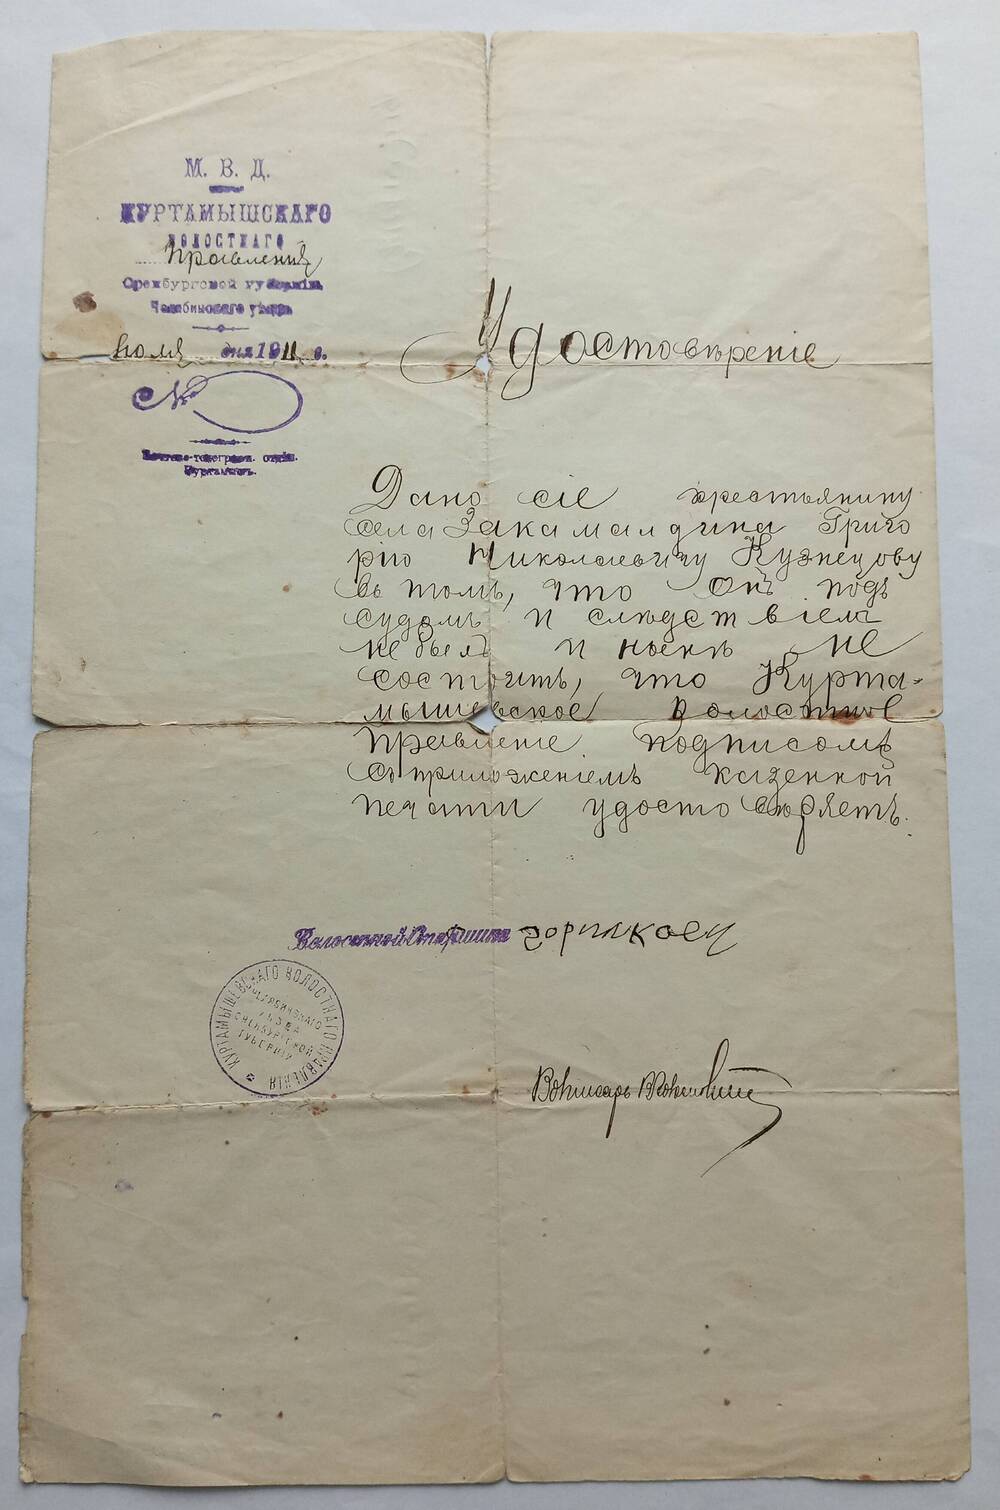 М. В. Д.
КУРТАМЫШСКАГО
ВОЛОСТНАГО
Правленія
Оренбургской губерніи,
Челябинскаго уѣзда
Іюля дня 1911 г.
№
Почтово-телеграфн. отдѣл.
Куртамышъ.
Удостовѣреніе
Дано сіе крестьянину
села Закамалдина Григо
рію Николаевичу Кузнецову
въ томъ, что онъ подъ
судомъ и слѣдствіемъ
не былъ и нынѣ не
состоитъ, что Курта-
мышевское Волостное
Правленіе подписомъ
съ приложеніемъ казенной
печати удостовѣряетъ.
Волостной Старшина
КУРТАМЫШЕВСКАГО ВОЛОСТНАГО ПРАВЛЕНІЯ
ЧЕЛЯБИНСКАГО
УѢЗДА
ОРЕНБУРГСКОЙ
ГУБЕРНІИ